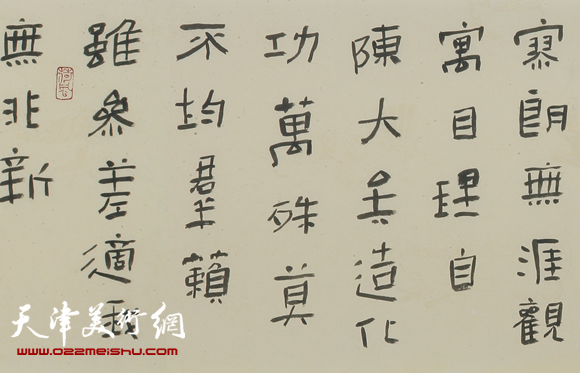 寥朗無涯觀
寓目理自
陳大矣造化
功萬殊莫
不均羣籟
雖參差適我
無非新
天津美術網
www.022meishu.com